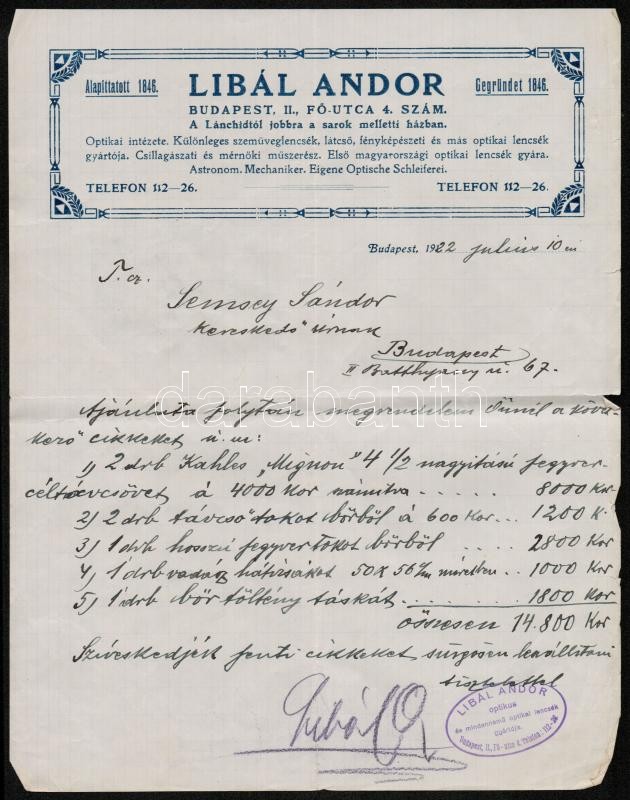 Alapíttatott 1846.
LIBÁL ANDOR
Gegründet 1846.
BUDAPEST, II., FŐ-UTCA 4. SZÁM.
A Lánchidtól jobbra a sarok melletti házban.
Optikai intézete. Különleges szemüveglencsék, látcső, fényképészeti és más optikai lencsék
gyártója. Csillagászati és mérnöki műszerész. Első magyarországi optikai lencsék gyára.
Astronom. Mechaniker. Eigene Optische Schleiferei.
TELEFON 112—26.
TELEFON 112—26.
Budapest, 1922 julius 10 én
T. cz.
Semsey Sándor
kereskedő úrnak
Budapest
II Batthyány u. 67.
darabanth
Ajánlata folytán megrendelem Önnél a követ-
kező cikkeket ú. m:
1) 2 drb Kahles „Mignon" 4 1/2 nagyitású fegyver-
céltávcsövet á 4000 Kor számitva ..... 8000 Kor
2) 2 drb távcső tokot bőrből á 600 Kor... 1200 K.
3) 1 drb hosszú fegyver tokot bőrből .... 2800 Kor
4) 1 drb vadász hátizsákot 50 x 56 méretben .. 1000 Kor
5) 1 drb bőr töltény táskát ...... 1800 Kor
összesen 14.800 Kor
Sziveskedjék fenti cikkeket sürgősen leszállitani
tisztelettel
Libál A
LIBÁL ANDOR
optikus
és mindennemű optikai lencsék
gyártója.
Budapest, II., Fő-utca 4. Telefon: 112-26